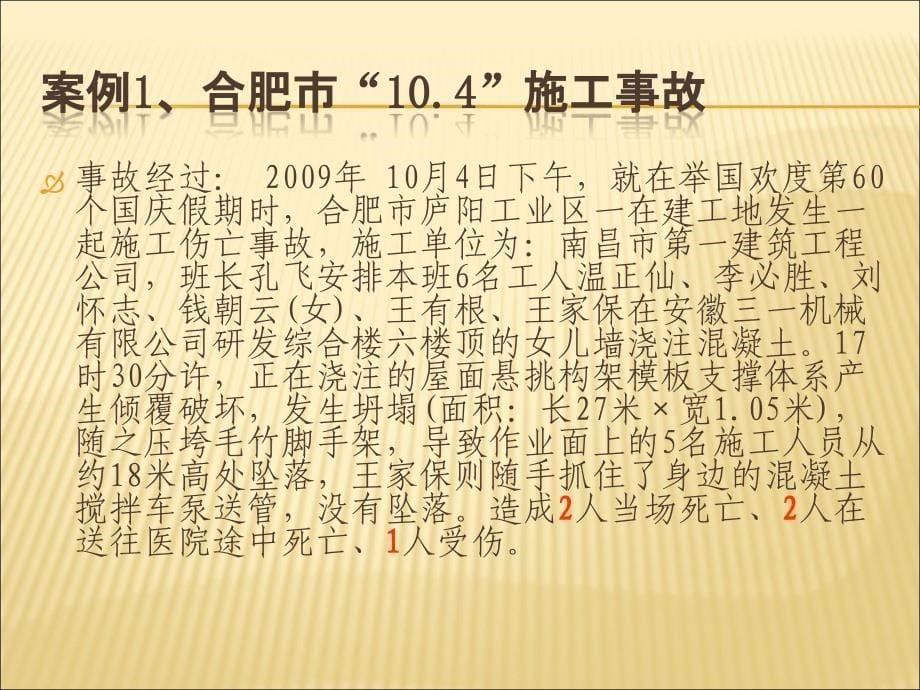 案例1、合肥市“10.4”施工事故
事故经过： 2009年 10月4日下午，就在举国欢度第60
个国庆假期时，合肥市庐阳工业区一在建工地发生一
起施工伤亡事故，施工单位为：南昌市第一建筑工程
公司，班长孔飞安排本班6名工人温正仙、李必胜、刘
怀志、钱朝云(女)、王有根、王家保在安徽三一机械
有限公司研发综合楼六楼顶的女儿墙浇注混凝土。17
时30分许，正在浇注的屋面悬挑构架模板支撑体系产
生倾覆破坏，发生坍塌(面积：长27米×宽1.05米)，
随之压垮毛竹脚手架，导致作业面上的5名施工人员从
约18米高处坠落，王家保则随手抓住了身边的混凝土
搅拌车泵送管，没有坠落。造成2人当场死亡、2人在
送往医院途中死亡、1人受伤。